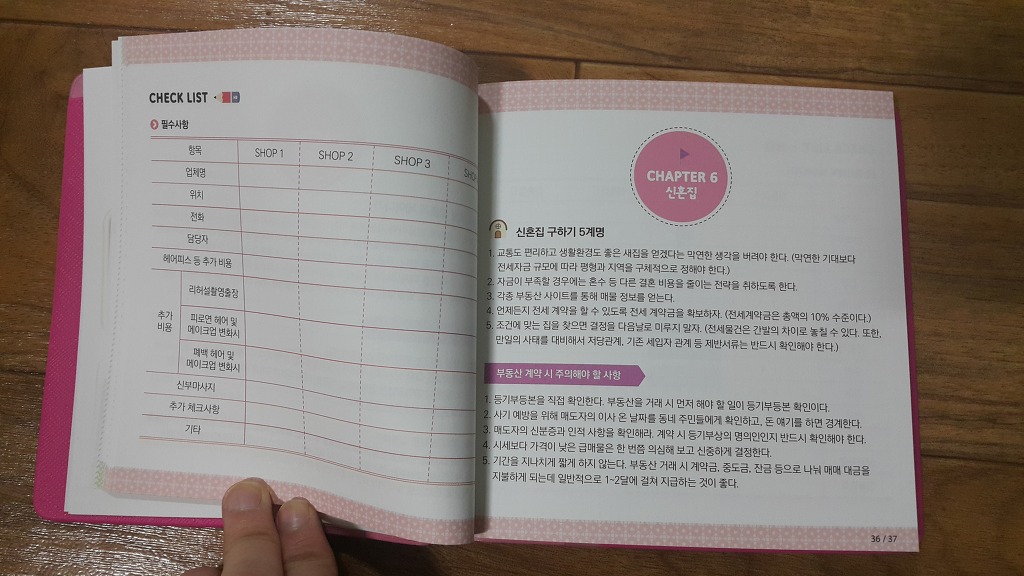 CHECK LIST
필수사항
항목 SHOP 1 SHOP 2 SHOP 3
업체명
위치
전화
담당자
헤어피스 등 추가 비용
추가
비용
리허설촬영출장
피로연 헤어 및
메이크업 변화시
폐백 헤어 및
메이크업 변화시
신부마사지
추가 체크사항
기타
CHAPTER 6
신혼집
신혼집 구하기 5계명
1. 교통도 편리하고 생활환경도 좋은 새집을 얻겠다는 막연한 생각을 버려야 한다. (막연한 기대보다
전세자금 규모에 따라 평형과 지역을 구체적으로 정해야 한다.)
2. 자금이 부족할 경우에는 혼수 등 다른 결혼 비용을 줄이는 전략을 취하도록 한다.
3. 각종 부동산 사이트를 통해 매물 정보를 얻는다.
4. 언제든지 전세 계약을 할 수 있도록 전세 계약금을 확보하자. (전세계약금은 총액의 10% 수준이다.)
5. 조건에 맞는 집을 찾으면 결정을 다음날로 미루지 말자. (전세물건은 간발의 차이로 놓칠 수 있다. 또한,
만일의 사태를 대비해서 저당관계, 기존 세입자 관계 등 제반서류는 반드시 확인해야 한다.)
부동산 계약 시 주의해야 할 사항
1. 등기부등본을 직접 확인한다. 부동산을 거래 시 먼저 해야 할 일이 등기부등본 확인이다.
2. 사기 예방을 위해 매도자의 이사 온 날짜를 동네 주민들에게 확인하고, 돈 얘기를 하면 경계한다.
3. 매도자의 신분증과 인적 사항을 확인해라. 계약 시 등기부상의 명의인인지 반드시 확인해야 한다.
4. 시세보다 가격이 낮은 급매물은 한 번쯤 의심해 보고 신중하게 결정한다.
5. 기간을 지나치게 짧게 하지 않는다. 부동산 거래 시 계약금, 중도금, 잔금 등으로 나눠 매매 대금을
지불하게 되는데 일반적으로 1~2달에 걸쳐 지급하는 것이 좋다.
36 / 37